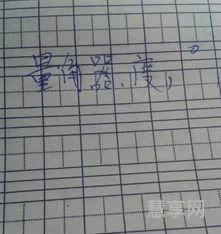 量角器、度，°
慧学网